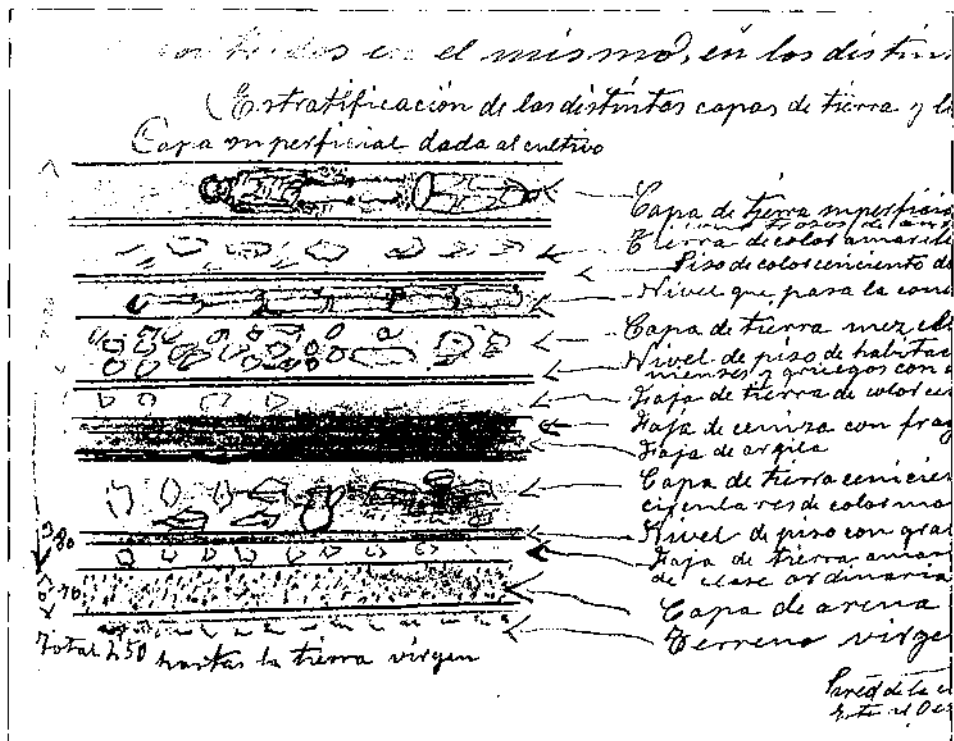 en el mismo, en los distin
(Estratificación de las distintas capas de tierra y l
Capa superficial dada al cultivo
Capa de tierra superficia
trozos de
Tierra de color amarill
Piso de color ceniciento d
Nivel que pasa la
Capa de tierra mezcla
Nivel de piso de habitac
y griegos con
Faja de tierra de color ce
Faja de ceniza con frag
Faja de argila
Capa de tierra cenicien
circulares de color ma
Nivel de piso con gra
Faja de tierra amar
de clase ordinaria
Capa de arena
Terreno virge
380
0'70
Total 4'50 hastas la tierra virgen
Pared de la